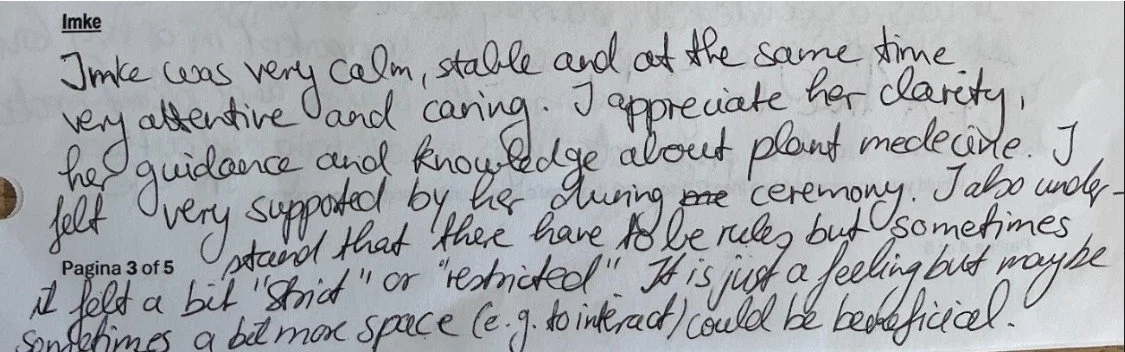 Imke
Imke was very calm, stable and at the same time
very attentive and caring. I appreciate her clarity,
her guidance and knowledge about plant medecine. I
felt very supported by her during me ceremony. I also under-
stand that there have to be rules but sometimes
Pagina 3 of 5
it felt a bit "strict" or "restricted" It is just a feeling but maybe
sometimes a bit more space (e.g. to interact) could be beneficial.